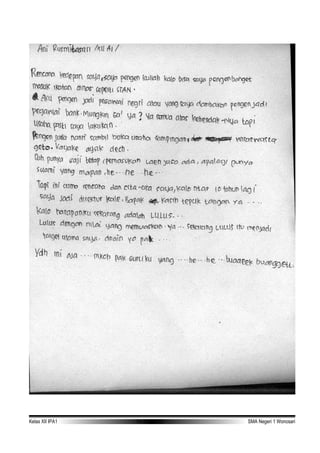 Ani Rusmitasari /XII A1/
Rencana kedepan saya, saya pengen kuliah kalo bisa saya pengen banget
masuk ikatan dinas seperti STAN.
Aku pengen jadi pegawai negri atau yang saya dambakan pengen jadi
pegawai bank. Mungkin ga' ya? Ya semua atas kehendak-Nya tapi
usaha pasti saya lakukan.
Pengen juga nanti sambil buka usaha sampingan, wiraswasta
geto. Kayake asyak dech.
Tuh punya gaji tetap, pemasukan laen juga ada, apalagi punya
suami yang mapan, he... he... he...
Tapi ini cuma rencana dan cita-cita saya, kalo ntar 10 tahun lagi
saya jadi direktur kale. Bapak kasih tepuk tangan ya ....
Kalo harapanku sekarang adalah LULUS...
Lulus dengan nilai yang memuaskan. ya... sekarang LULUS itu menjadi
target utama saya. doain yo pak ....
Ydh ini aja .... makch pak guruku yang ... he.. he.. buaaeek buanggeu.
Kelas XII IPA1
SMA Negeri 1 Wonosari